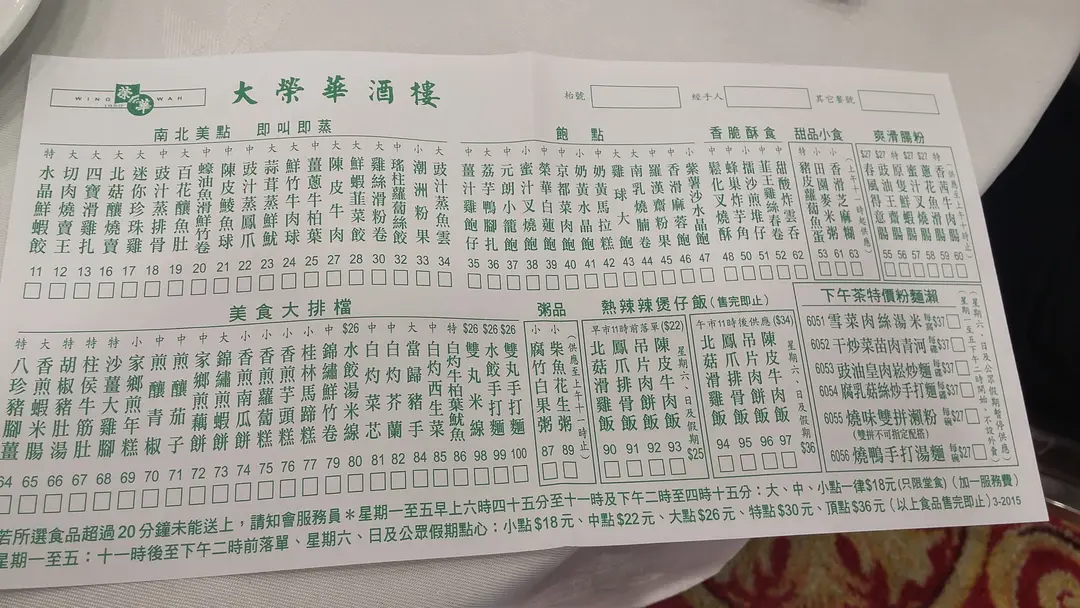 WING WAH
榮華
1950
大榮華酒樓
枱號
經手人
其它餐號
南北美點 即叫即蒸
特 水晶鮮蝦餃 11
大 切肉燒賣王 12
大 四寶滑雞扎 13
大 北菇釀燒賣 16
小 迷你珍珠雞 17
中 豉汁蒸排骨 18
大 百花釀魚肚 19
中 蠔油魚滑鮮竹卷 20
中 陳皮鯪魚球 21
中 豉汁蒸鳳爪 22
大 蒜茸蒸鮮魷 23
大 鮮竹牛肉球 24
中 薑蔥牛柏葉 25
大 陳皮牛肉 27
大 鮮蝦 28
大 雞絲滑粉卷 30
中 瑤柱蘿蔔絲餃 32
小 潮洲粉果 33
大 豉汁蒸魚雲 34
飽點
中 薑汁雞飽仔 35
大 荔芋鴨腳扎 36
中 元朗小籠飽 37
小 蜜汁叉燒飽 38
中 榮華白蓮飽 39
中 京都菜肉飽 40
小 奶黃水晶飽 41
小 奶黃馬拉糕 42
大 雞球大飽 43
中 南乳燒腩卷 44
大 羅漢齋粉果 45
中 香滑麻蓉飽 46
小 紫薯沙水晶飽 47
香脆酥食
中 鬆化叉燒酥 48
中 蜂巢炸芋角 49
小 擂沙煎堆仔 50
中 韮王雞絲春卷 51
中 甜酸炸雲吞 52
62
甜品小食
特 豬皮蘿蔔魚蛋 53
小 田園麥米粥 61
小 香滑芝麻糊 63
(上午十一時起供應)
爽滑腸粉
$27 春風得意腸 55
$27 豉油皇滑腸 56
特 原隻鮮蝦腸 57
$27 蜜汁叉燒腸 58
$27 蔥花魚滑腸 59
特 香茜牛肉腸 60
(供應至上午十一時止)
美食大排檔
特 八珍豬腳薑 64
特 香煎蝦米腸 65
大 胡椒豬肚湯 66
特 柱侯牛筋腩 67
特 沙薑大雞腳 68
小 家鄉煎年糕 69
中 煎釀青椒 70
中 煎釀茄子 71
中 家鄉煎藕餅 72
大 錦繡南瓜餅 73
小 香煎蘿蔔糕 75
小 香煎芋頭糕 76
小 桂林馬蹄糕 77
中 錦繡鮮竹卷 78
$26 水餃湯米線 79
中 白灼菜芯 80
中 白灼芥蘭 81
大 當歸豬手 82
中 白灼西生菜 84
特 白灼牛柏葉魷魚 86
$26 雙丸米線 98
$26 水餃手打麵 99
$26 雙丸手打麵 100
粥品
小 腐竹白果粥 87
小 柴魚花生粥 89
(供應至上午十一時止)
熱辣辣煲仔飯(售完即止)
早市11時前落單($22)
北菇滑雞飯 90
鳳爪排骨飯 91
吊片肉餅飯 92
陳皮牛肉飯 93
星期六、日及假期$25
午市11時後供應($34)
北菇滑雞飯 94
鳳爪排骨飯 95
吊片肉餅飯 96
陳皮牛肉飯 97
星期六、日及假期$36
下午茶特價粉麵瀨
6051 雪菜肉絲湯米 每窩$37
6052 干炒菜苗肉青河 每碟$37
6053 豉油皇肉崧炒麵 每碟$37
6054 腐乳菇絲炒手打麵 每碟$37
6055 燒味雙拼瀨粉 每碗$27
(雙拼不可指定配搭)
6056 燒鴨手打湯麵 每碗$27
(星期一至五下午二時開始，不設外賣)
(星期六、日及公眾假期暫停供應)
若所選食品超過20分鐘未能送上，請知會服務員＊星期一至五早上六時四十五分至十一時及下午二時至四時十五分：大、中、小點一律$18元(只限堂食) (加一服務費)
星期一至五：十一時後至下午二時前落單、星期六、日及公眾假期點心：小點$18元、中點$22元、大點$26元、特點$30元、頂點$36元 (以上食品售完即止) 3-2015